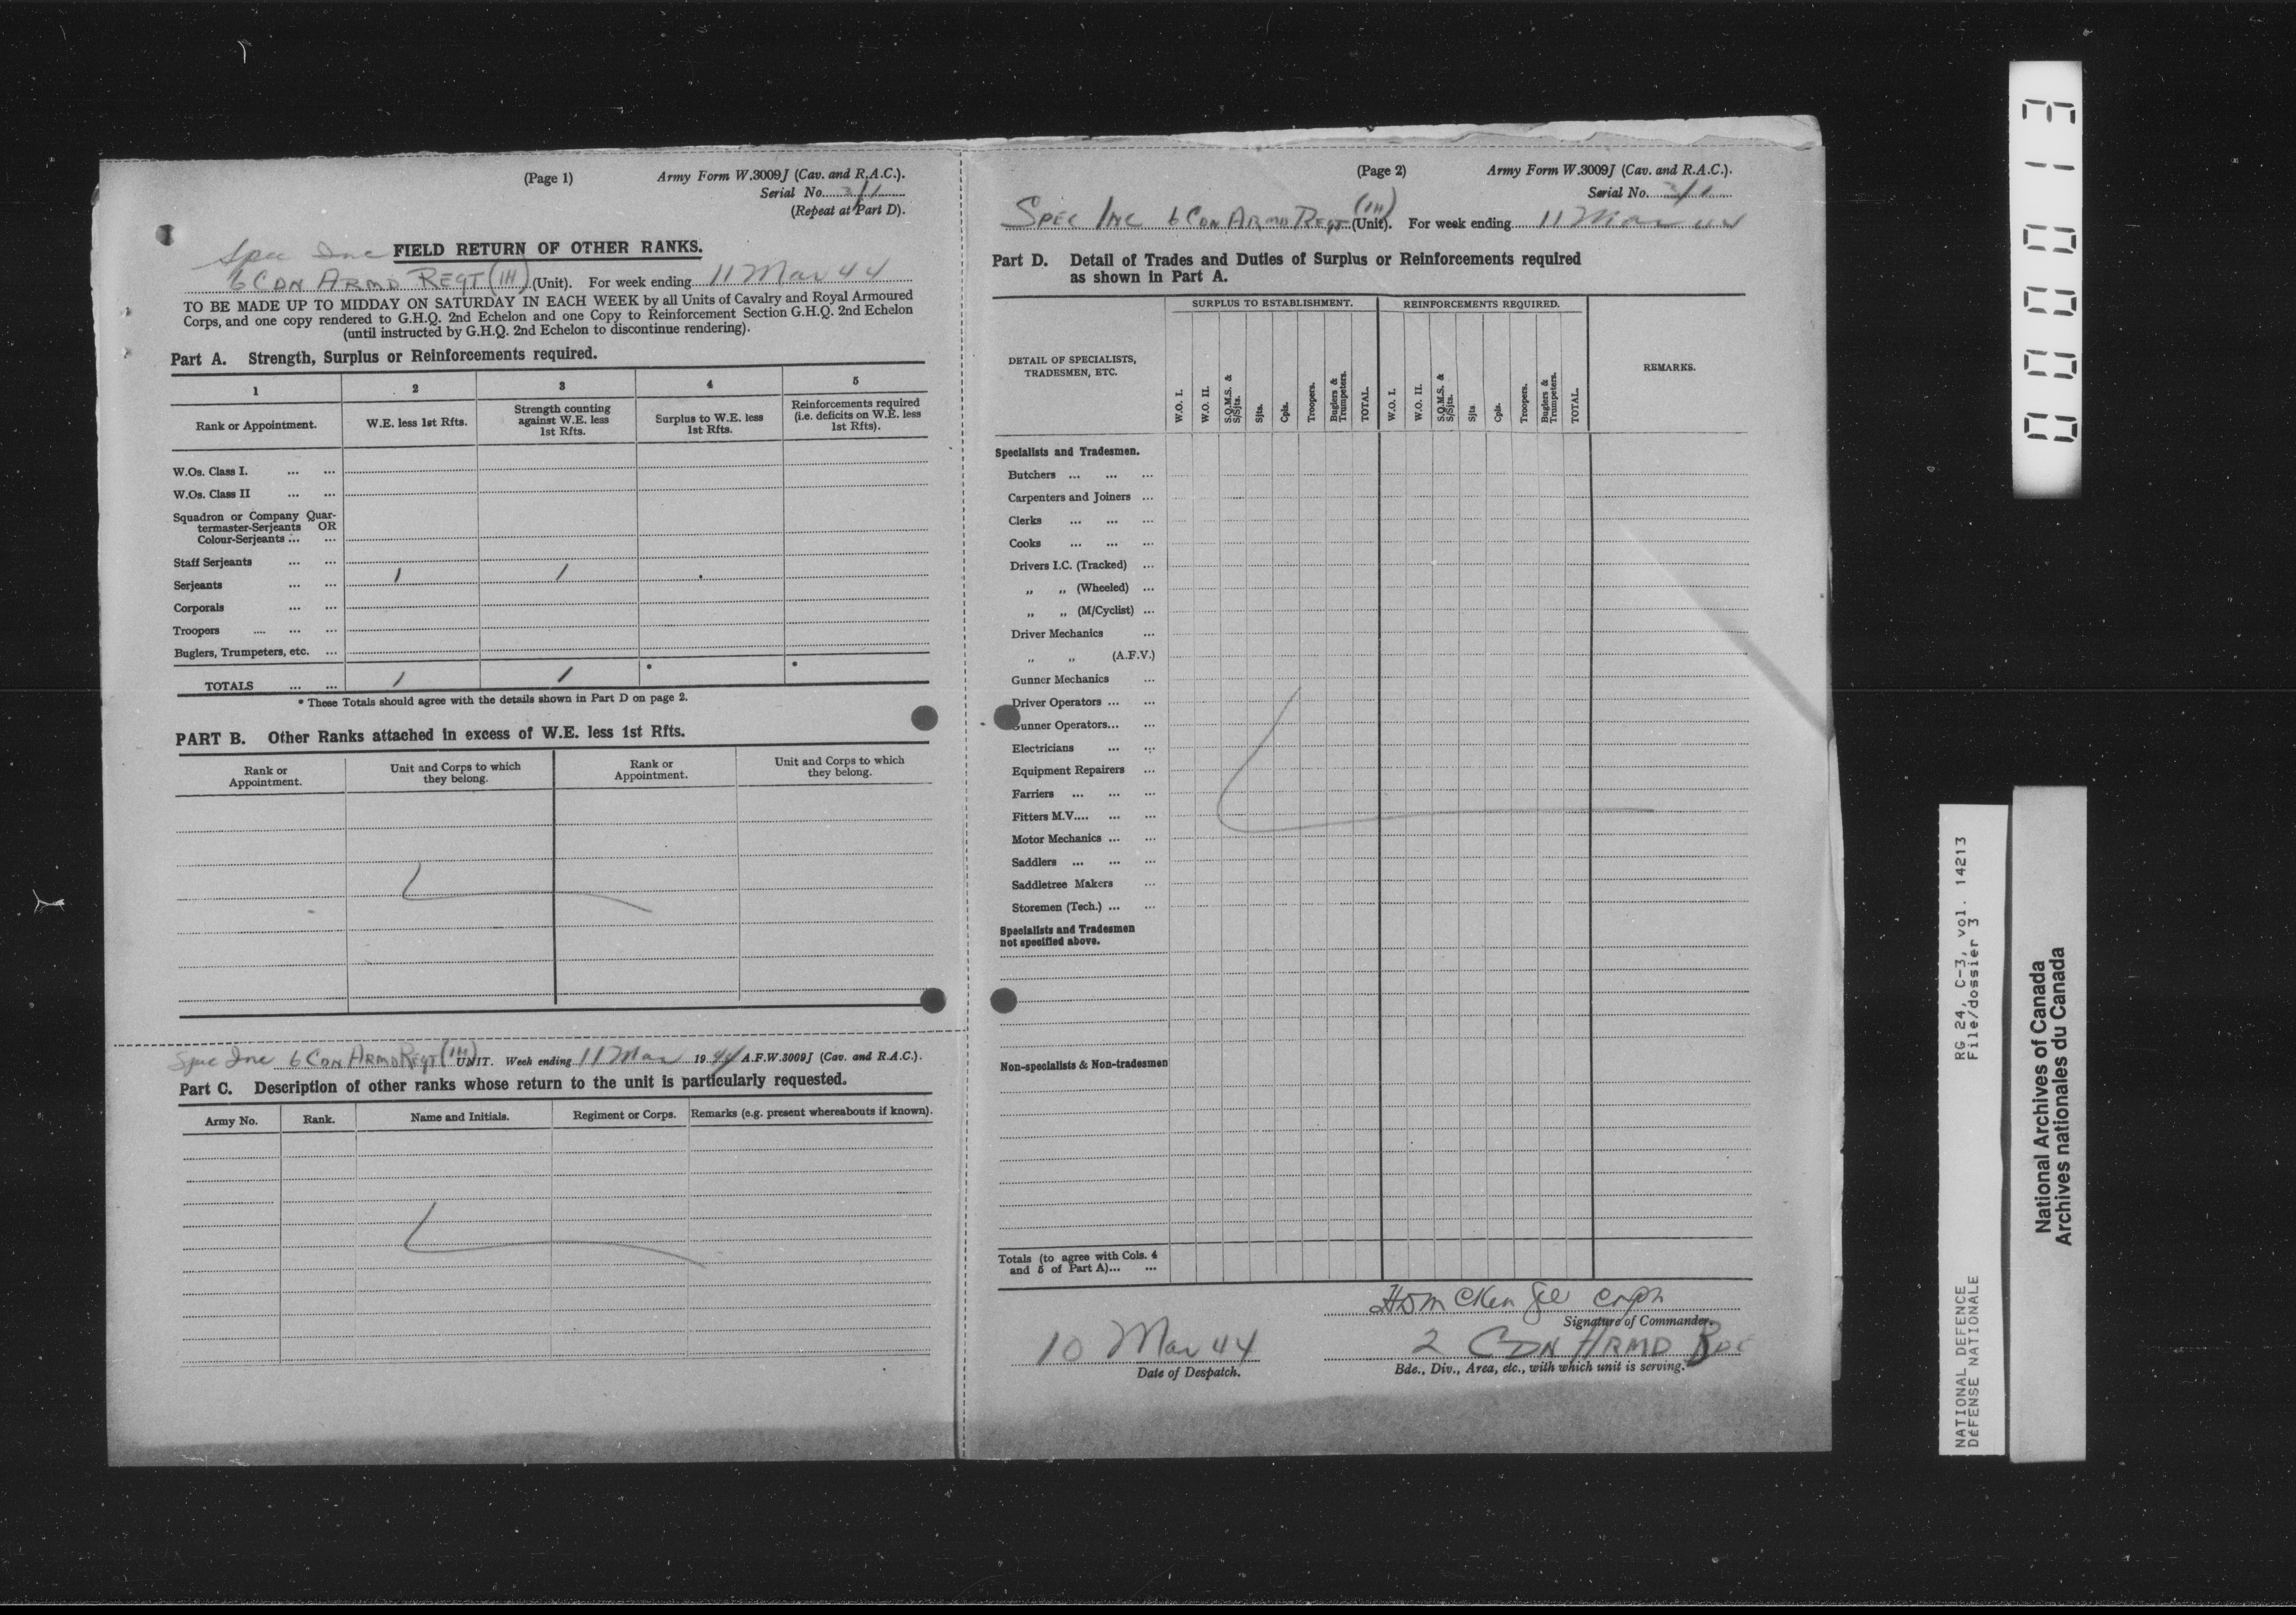 (Page 1) Army Form W.3009J (Cav. and R.A.C.).
Serial No.
(Repeat at Part D).
Spec Inc FIELD RETURN OF OTHER RANKS.
6 CDN ARMD REGT (1H) (Unit). For week ending 11 Mar 44
TO BE MADE UP TO MIDDAY ON SATURDAY IN EACH WEEK by all Units of Cavalry and Royal Armoured
Corps, and one copy rendered to G.H.Q. 2nd Echelon and one Copy to Reinforcement Section G.H.Q. 2nd Echelon
(until instructed by G.H.Q. 2nd Echelon to discontinue rendering).
Part A. Strength, Surplus or Reinforcements required.
1 2 3 4 5
Rank or Appointment. W.E. less 1st Rfts. Strength counting against W.E. less 1st Rfts. Surplus to W.E. less 1st Rfts. Reinforcements required (i.e. deficits on W.E. less 1st Rfts).
W.Os. Class I. ... ...
W.Os. Class II ... ...
Squadron or Company Quar-
termaster-Serjeants OR
Colour-Serjeants ... ...
Staff Serjeants ... ...
Serjeants ... ... 1 1
Corporals ... ...
Troopers .... ... ...
Buglers, Trumpeters, etc. ...
TOTALS ... ... 1 1 * *
* These Totals should agree with the details shown in Part D on page 2.
PART B. Other Ranks attached in excess of W.E. less 1st Rfts.
Rank or Appointment. Unit and Corps to which they belong. Rank or Appointment. Unit and Corps to which they belong.
Spec Inc 6 CDN ARMD REGT (1H) UNIT. Week ending 11 Mar 1944 A.F.W.3009J (Cav. and R.A.C.).
Part C. Description of other ranks whose return to the unit is particularly requested.
Army No. Rank. Name and Initials. Regiment or Corps. Remarks (e.g. present whereabouts if known).
(Page 2) Army Form W.3009J (Cav. and R.A.C.).
Serial No.
SPEC INC 6 CDN ARMD REGT (1H) (Unit). For week ending 11 Mar 44
Part D. Detail of Trades and Duties of Surplus or Reinforcements required
as shown in Part A.
SURPLUS TO ESTABLISHMENT. REINFORCEMENTS REQUIRED.
DETAIL OF SPECIALISTS, TRADESMEN, ETC. W.O. I. W.O. II. S.Q.M.S. & S/Sjts. Sjts. Cpls. Troopers. Buglers & Trumpeters. TOTAL. W.O. I. W.O. II. S.Q.M.S. & S/Sjts. Sjts Cpls. Troopers. Buglers & Trumpeters. TOTAL. REMARKS.
Specialists and Tradesmen.
Butchers ... ... ...
Carpenters and Joiners ...
Clerks ... ... ...
Cooks ... ... ...
Drivers I.C. (Tracked) ...
„ „ (Wheeled) ...
„ „ (M/Cyclist) ...
Driver Mechanics ...
„ „ (A.F.V.)
Gunner Mechanics ...
Driver Operators ... ...
Gunner Operators... ...
Electricians ... ...
Equipment Repairers ...
Farriers ... ... ...
Fitters M.V.... ... ...
Motor Mechanics ... ...
Saddlers ... ... ...
Saddletree Makers ...
Storemen (Tech.) ... ...
Specialists and Tradesmen
not specified above.
Non-specialists & Non-tradesmen
Totals (to agree with Cols. 4
and 5 of Part A)... ...
Signature of Commander.
10 Mar 44 2 CDN ARMD BDE
Date of Despatch. Bde., Div., Area, etc., with which unit is serving.
000013
RG 24, C-3, vol. 14213
File/dossier 3
NATIONAL DEFENCE
DÉFENSE NATIONALE
National Archives of Canada
Archives nationales du Canada